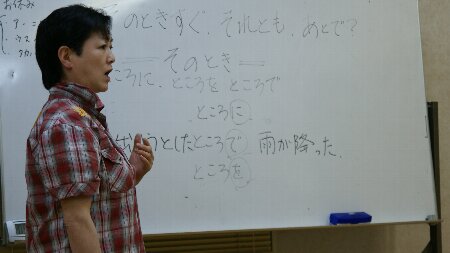 お休み
のときすぐ、それとも、あとで？
そのとき
ころに、ところを ところで
ところに
うとしたところで 雨が降った。
ところを